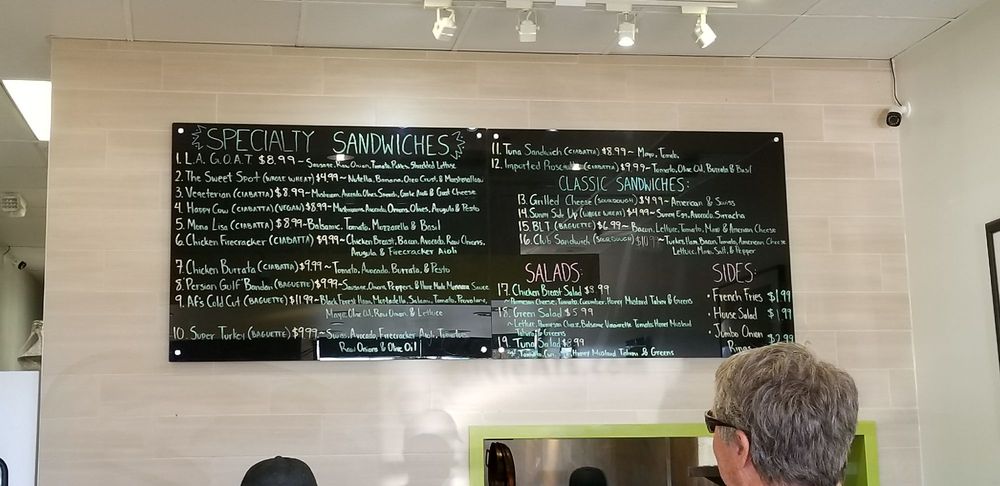 SPECIALTY SANDWICHES
1. L.A. G.O.A.T $8.99~ Sausage, Raw Onion, Tomato, Shredded Lettuce
2. The Sweet Spot (WHOLE WHEAT) $4.99~ Nutella, Banana, Oreo Crust, & Marshmallow
3. Vegeterian (CIABATTA) $8.99~ Mushroom, Avocado, Olives, & Goat Cheese
4. Happy Cow (CIABATTA) (VEGAN) $8.99~ Mushrooms, Avocado, Onions, Olives, Arugula & Pesto
5. Mona Lisa (CIABATTA) $8.99~ Balsamic, Tomato, Mozzarella & Basil
6. Chicken Firecracker (CIABATTA) $9.99~ Chicken Breast, Bacon, Avocado, Raw Onions,
Arugula & Firecracker Aioli
7. Chicken Burrata (CIABATTA) $9.99~ Tomato, Avocado, Burrata, & Pesto
8. "Persian Gulf" Bandari (BAGUETTE) $9.99~ Sausage, Onion, Peppers, & Sauce
9. AF's Cold Cut (BAGUETTE) $11.99~ Black Forest Ham, Mortadella, Salami, Tomato, Provolone,
Mayo, Olive Oil, Raw Onion & Lettuce
10. Super Turkey (BAGUETTE) $9.99~ Swiss, Avocado, Firecracker Aioli, Tomatoes,
Raw Onions & Olive Oil
11. Tuna Sandwich (CIABATTA) $8.99~ Mayo, Tomato,
12. Imported (CIABATTA) $9.99~ Tomato, Olive Oil, Burrata & Basil
CLASSIC SANDWICHES:
13. Grilled Cheese (SOURDOUGH) $4.99~ American & Swiss
14. Sunny Side Up (WHOLE WHEAT) $4.99~ Sunny Egg, Avocado, Sriracha
15. BLT (BAGUETTE) $6.99~ Bacon, Lettuce, Tomato, Mayo & American Cheese
16. Club Sandwich (SOURDOUGH) ~ Turkey, Ham, Bacon, Tomato, American Cheese
Lettuce, Mayo, Salt, & Pepper
SALADS:
17. Chicken Breast Salad $8.99
~ Parmesan Cheese, Tomato, Cucumber, Honey Mustard Tahini & Greens
18. Green Salad $5.99
~ Lettuce, Parmesan Cheese, Balsamic Vinaigrette, Tomato, Honey Mustard
Tahini & Greens
19. Tuna Salad
Tomato, Honey Mustard Tahini & Greens
SIDES:
• French Fries $1.99
• House Salad $1.99
• Jumbo Onion $2.99
Rings